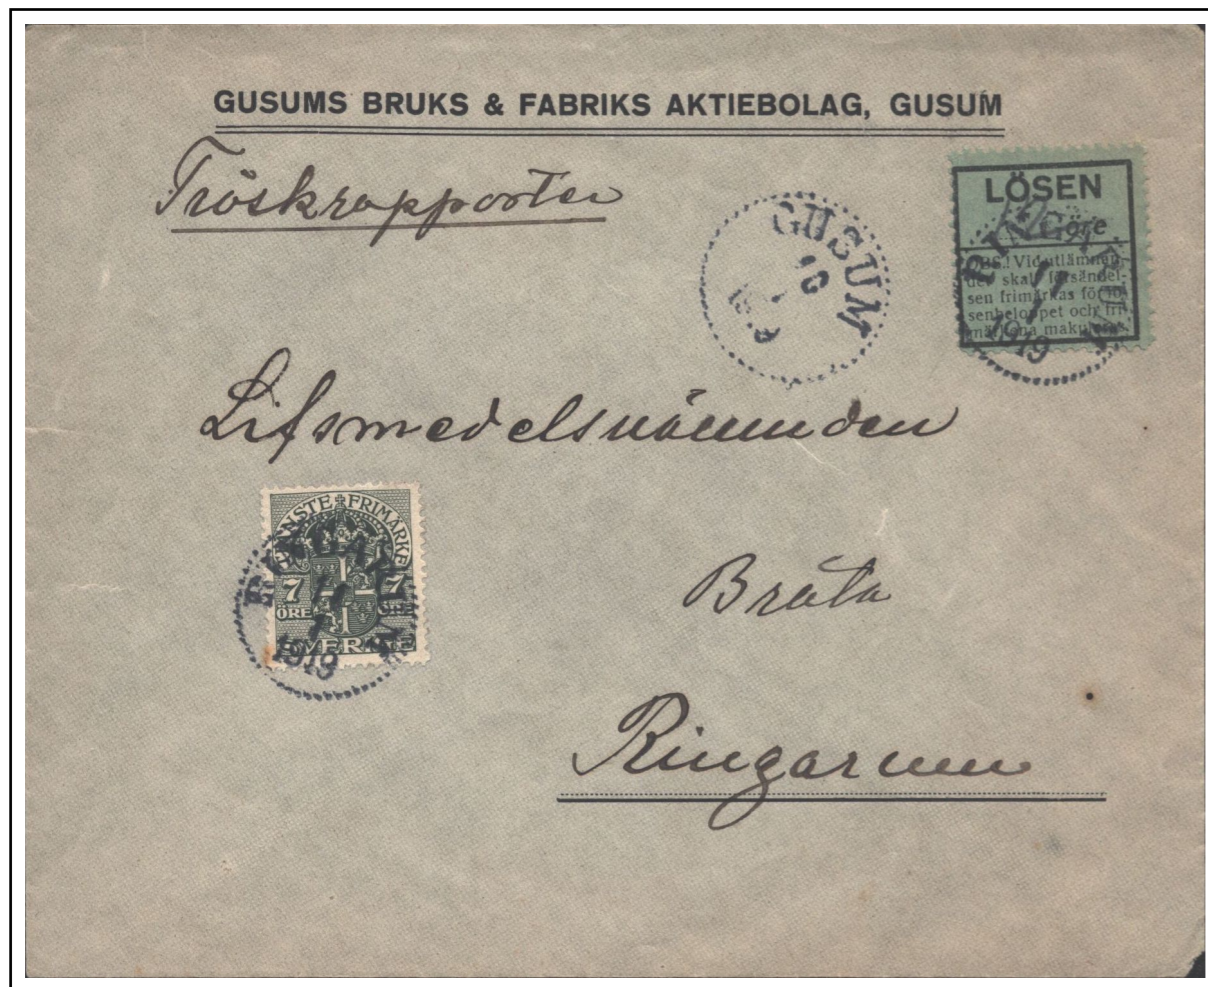 GUSUMS BRUKS & FABRIKS AKTIEBOLAG, GUSUM
Tröskrapporter
GUSUM
10
LÖSEN
öre
OBS.! Vid utlämnan-
det skall försändel-
sen frimärkas för lö-
senbeloppet och fri-
märkena makuleras.
RINGARUM
11
1
1919
Lifsmedelsnämnden
TJENSTE FRIMÄRKE
7 7
ÖRE ÖRE
SVERIGE
RINGARUM
11
1
1919
Bråta
Ringarum